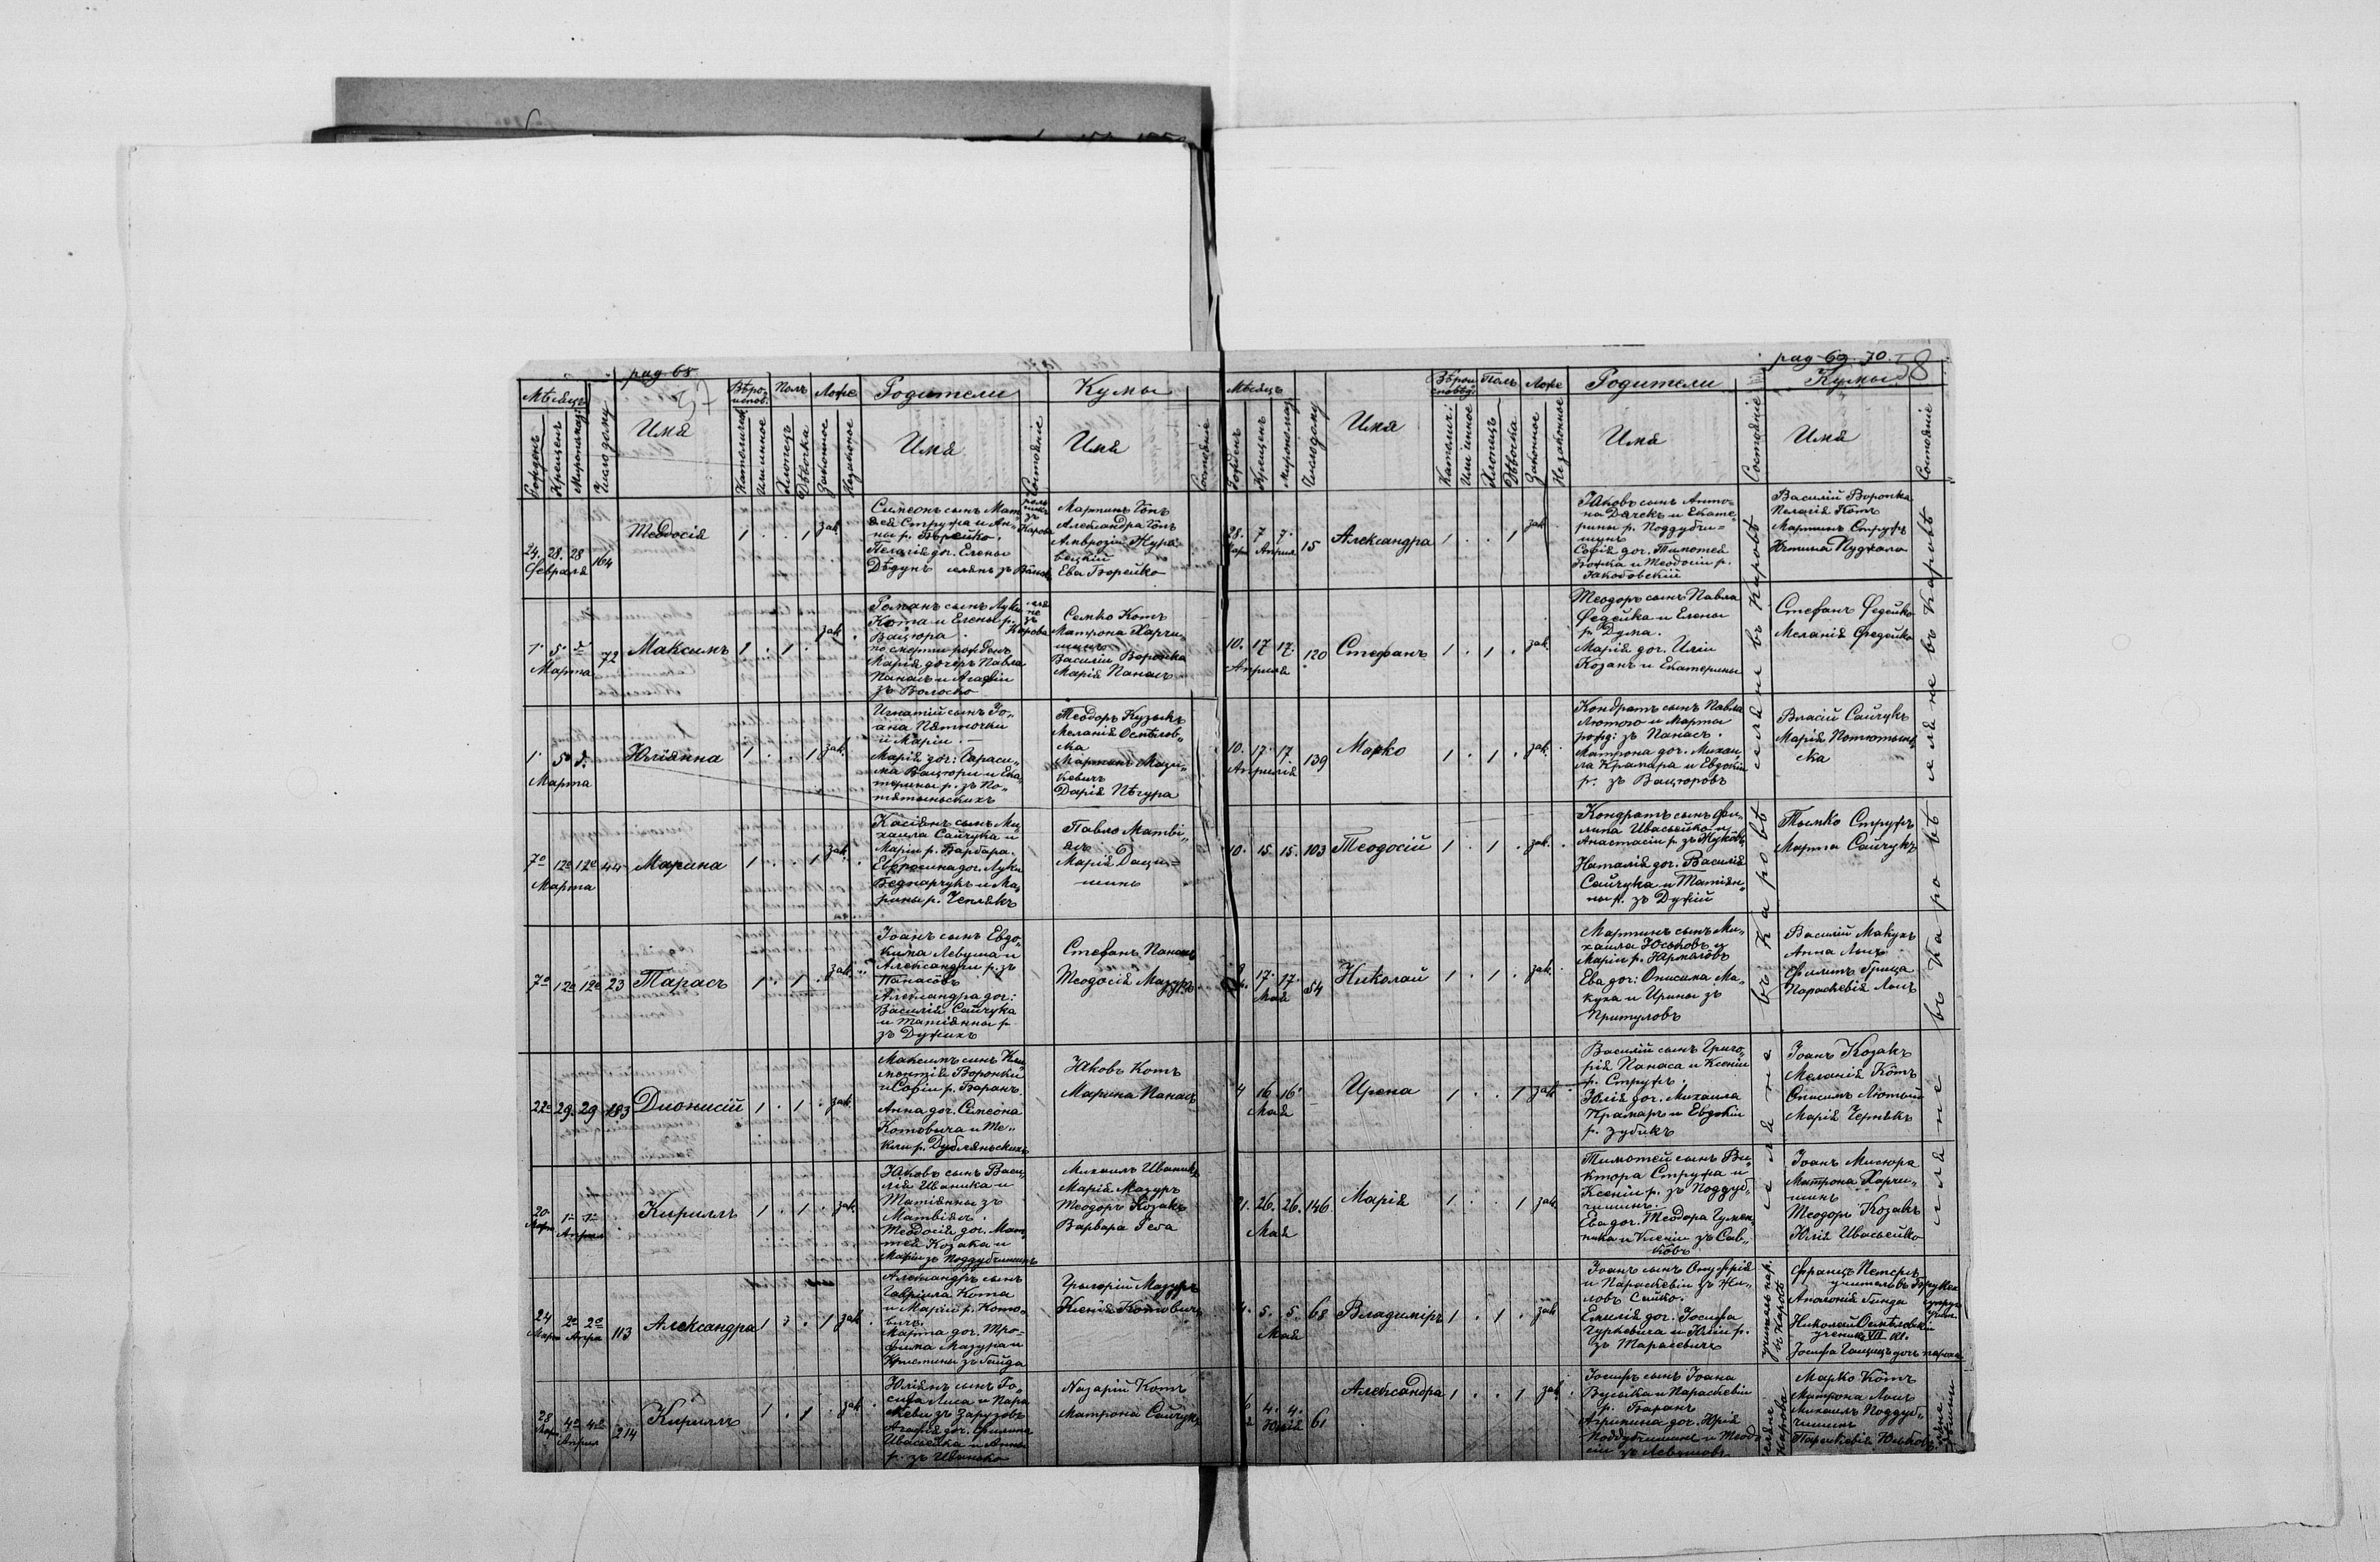 рад 68.
Мѣсяцъ
Вѣро-
испов.
Полъ
Ложе
Родители
Кумы
Рожденъ
Крещенъ
Миропомаз.
Число дому
Имя
Католическ.
Или инное
Хлопецъ
Дѣвочка
Законное
Незаконное
Имя
Состояніе
Имя
Состояніе
24. 28. 28
Февраля
164
Теодосія
1 . . 1 зак.
Симеонъ сынъ Мат
ѳея Струфа и Ан-
ны р. Борейко.
Пелагія доч. Елены
Дѣдунъ
Мартинъ Гопъ
Александра Гопъ
Амврозій Жура-
вецкій
Ева Борейко
1. 5.
Марта
72
Максимъ
1 . 1 . зак.
Романъ сынъ Луки
Кота и Елены р.
Вацюра
по смерти рожденъ
Марія дочерь Павла
Панасъ и Агафіи
зъ Волосько
Карова
Семко Котъ
Матрона Харчи-
шинъ
Василій Воронка
Марія Панасъ
1. 5.
Марта
Юліянна
1 . . 1 зак.
Игнатій сынъ Іо-
ана Пятночки
и Маріи. —
Марія доч: Гараси-
ма Вацюри и Ека-
терины р. зъ По-
тятыньскихъ
Теодоръ Кузыкъ
Меланія Осмѣлов-
ска
Мартинъ Мази-
кевичъ
Дарія Пѣгура
7о 12о 12о 44
Марта
Марина
1 . . 1 зак.
Касіянъ сынъ Ми-
хаила Сайчука и
Маріи р. Барбара.
Евросина доч. Луки
Беднарчукъ и Ма-
рины р. Чеплякъ
Павло Матві-
яъ
Марія Даци-
шинъ
7о 12о 12о 23
Тарасъ
1 . 1 . зак.
Іоанъ сынъ Евдо-
кима Левуша и
Александри р. зъ
Панасовъ
Александра доч:
Василія Сайчука
и Татіянны р.
зъ Дужихъ
Стефанъ Панасъ
Теодосія Мазуръ
22о 29. 29 183
Дионисій
1 . 1 . зак.
Максимъ сынъ Кли-
монтія Воронки
и Софіи р. Баранъ
Анна доч. Симеона
Котовича и Те-
кли р. Дубляньскихъ
Яковъ Котъ
Марина Панасъ
20 1о 1о
Марта Априля
Кириллъ
1 . 1 . зак.
Яковъ сынъ Васи-
лія Иваника и
Татіянны зъ
Матвіяъ.
Теодосія доч. Мат-
тея Козака и
Маріи зъ Поддубчишинъ
Михаилъ Иваникъ
Марія Мазуръ
Теодоръ Козакъ
Варвара Геба
24 2о 2о 113
Марта Апри
Александра
1 . . 1 зак.
Александръ сынъ
Гавріила Кота
и Маріи р. Кото-
вичъ.
Марта доч. Тро-
фима Мазура и
Кристины зъ Гайда
Григорій Мазуръ
Ксенія Котовичъ
28 4о 4о 214
Мар. Априля
Кириллъ
1 . 1 . зак.
Юліянъ сынъ Іо-
сифа Лиса и Пара-
скеви зъ Зарузовъ
Агафія доч. Филипа
Ивасейка и Анны
р. зъ Иванько
Назарій Котъ
Матрона Сайчукъ
рад 69. 70.
58
Мѣсяцъ
Вѣрои
сповѣд.
Полъ
Ложе
Родители
Кумы
Рожденъ
Крещенъ
Миропомаз
Число дому
Имя
Католич:
Или инное
Хлопецъ
Дѣвочка
Законное
Незаконное
Имя
Состояніе
Имя
Состояніе
28. 7 7.
Мар. Априля
15
Александра
1 . . 1 зак.
Яковъ сынъ Анто-
на Дячекъ и Екате-
рины р. Поддубчи-
шинъ
Софія доч. Тимотея
Божка и Теодосіи р.
Якововскій
Василій Воронка
Пелагія Котъ
Мартинъ Струфъ
10. 17 17.
Априля
120
Стефанъ
1 . 1 . зак.
Теодоръ сынъ Павла
Федейка и Елены
р. Дума.
Марія доч. Иліи
Козанъ и Екатерины
Стефанъ Федейко
Меланія Федейко
10. 17. 17
Априлія
139
Марко
1 . 1 . зак.
Кондратъ сынъ Павла
Лютого и Марты
рожд: зъ Панасъ.
Матрона доч. Михаи-
ла Крамара и Евдокіи
р. зъ Вацюровъ
Власій Сайчукъ
Марія Потятынь-
ска
10. 15. 15. 103
Теодосій
1 . 1 . зак.
Кондратъ сынъ Фи-
липа Ивасейко и
Анастасіи р. зъ Жуковъ
Наталія доч. Василія
Сайчука и Татіян-
ны р. зъ Дужій
Тымко Струфъ
Марта Сайчукъ
17. 17. 54
Мая
Николай
1 . 1 . зак.
Мартинъ сынъ Ми-
хаила Юськовъ и
Маріи р. Ярмоловъ
Ева доч: Онисима Ма-
куха и Ирины зъ
Притуловъ
Василій Макухъ
Анна Лисъ
Филипъ Грица
Параскевія Лисъ
4 16 16.
Мая
Ирена
1 . . 1 зак.
Василій сынъ Григо-
рія Панаса и Ксеніи
р. Струфъ.
Юлія доч. Михаила
Крамаръ и Евдокіи
р. Зубикъ
Іоанъ Козакъ
Меланія Котъ
Онисимъ Лютый
Марія Чернякъ
21. 26. 26. 146
Мая
Марія
1 . . 1 зак.
Тимотей сынъ Ви-
ктора Струфа и
Ксеніи р. зъ Поддуб-
чишинъ.
Ева доч. Теодора Гумен-
ника и Ксеніи зъ Сав-
ковъ
Іоанъ Мисюра
Матрона Харчи-
шинъ
Теодоръ Козакъ
Юлія Ивасейко
4. 5. 5. 68
Мая
Владиміръ
1 . 1 . зак
Іоанъ сынъ Онуфрія
и Параскевіи зъ Жи-
ловъ Сайко.
Емилія доч. Іосифа
Гуркевича и Юліи р.
зъ Тарасевичъ
учитель нар.
въ Каровѣ
Францъ Петеръ
Аполонія Гинда
Николай Осмѣловскій
ученикъ VII кл.
4. 4. 61
Юнія
Александра
1 . . 1 зак.
Іосифъ сынъ Іоана
Вуська и Параскевіи
р. Баранъ
Агрипина доч. Юрія
Поддубчишинъ и Теодо-
сіи зъ Левушовъ
Марко Котъ
Матрона Лисъ
Михаилъ Поддуб-
чишинъ
Параскевія Юськовъ
селяне въ Каровѣ
селяне въ Каровѣ